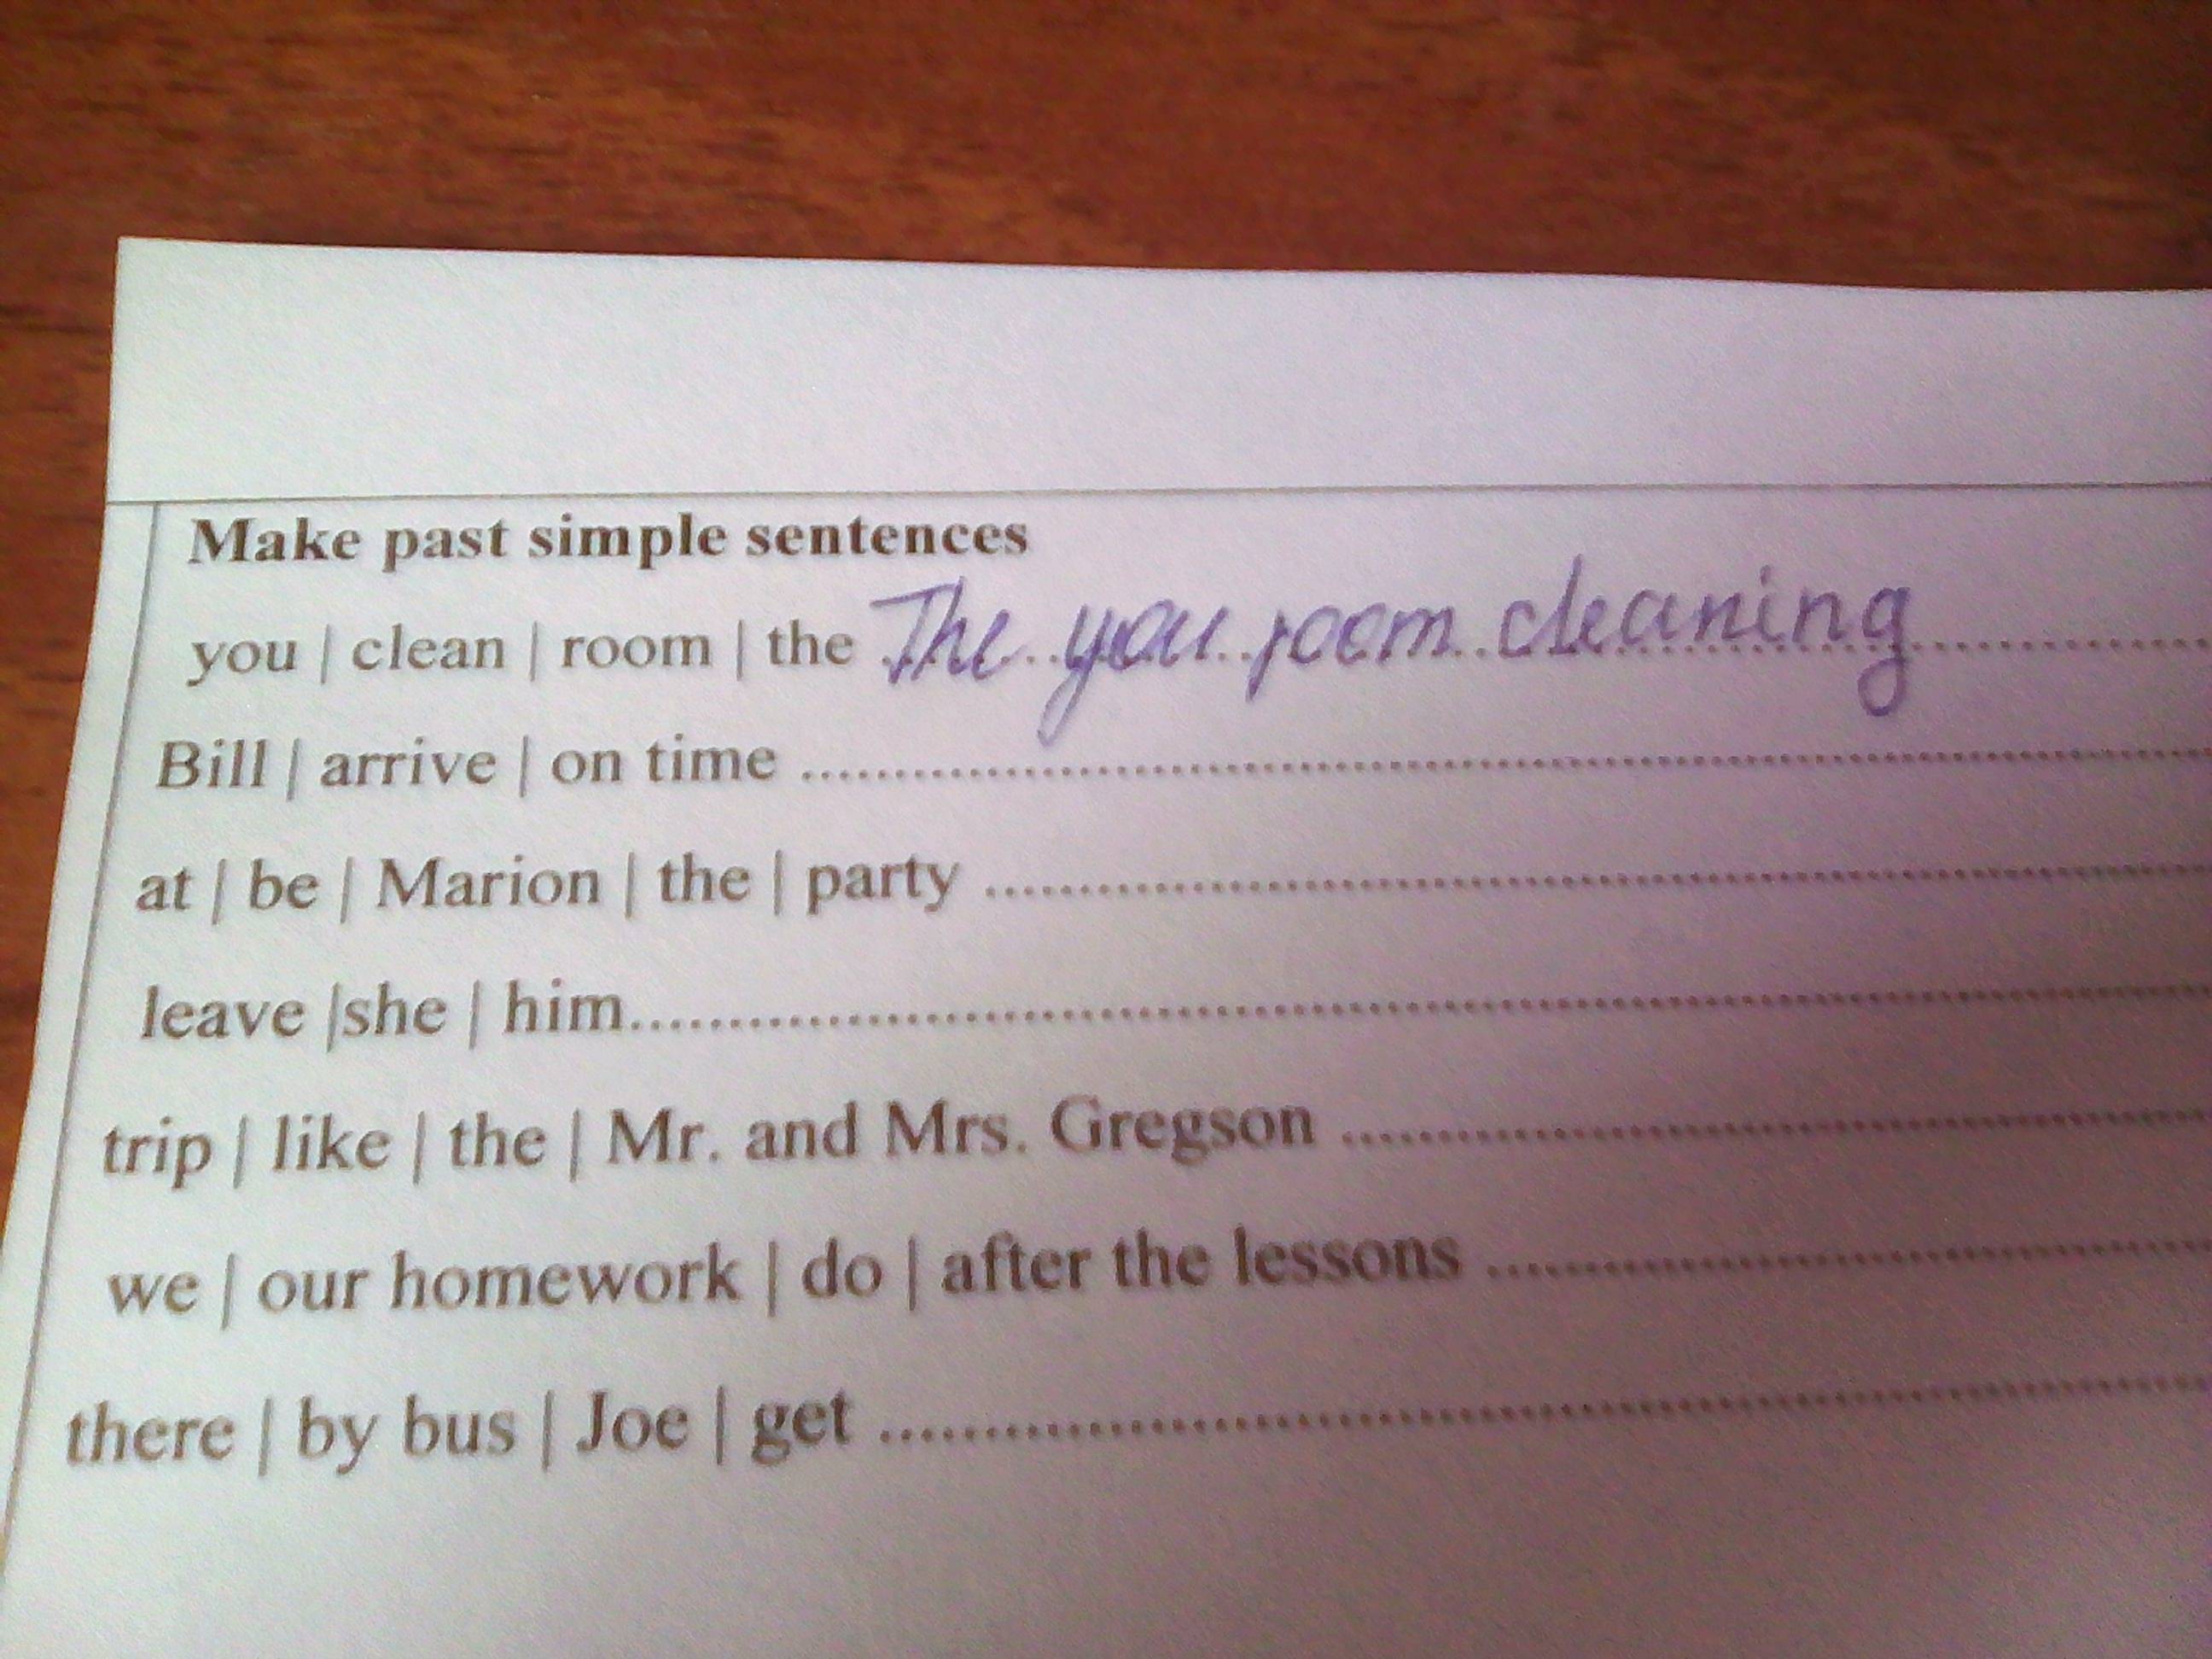 Make past simple sentences
you | clean | room | the The you room cleaning
Bill | arrive | on time ........................................
at | be | Marion | the | party ........................................
leave |she | him........................................
trip | like | the | Mr. and Mrs. Gregson ........................................
we | our homework | do | after the lessons ........................................
there | by bus | Joe | get ........................................